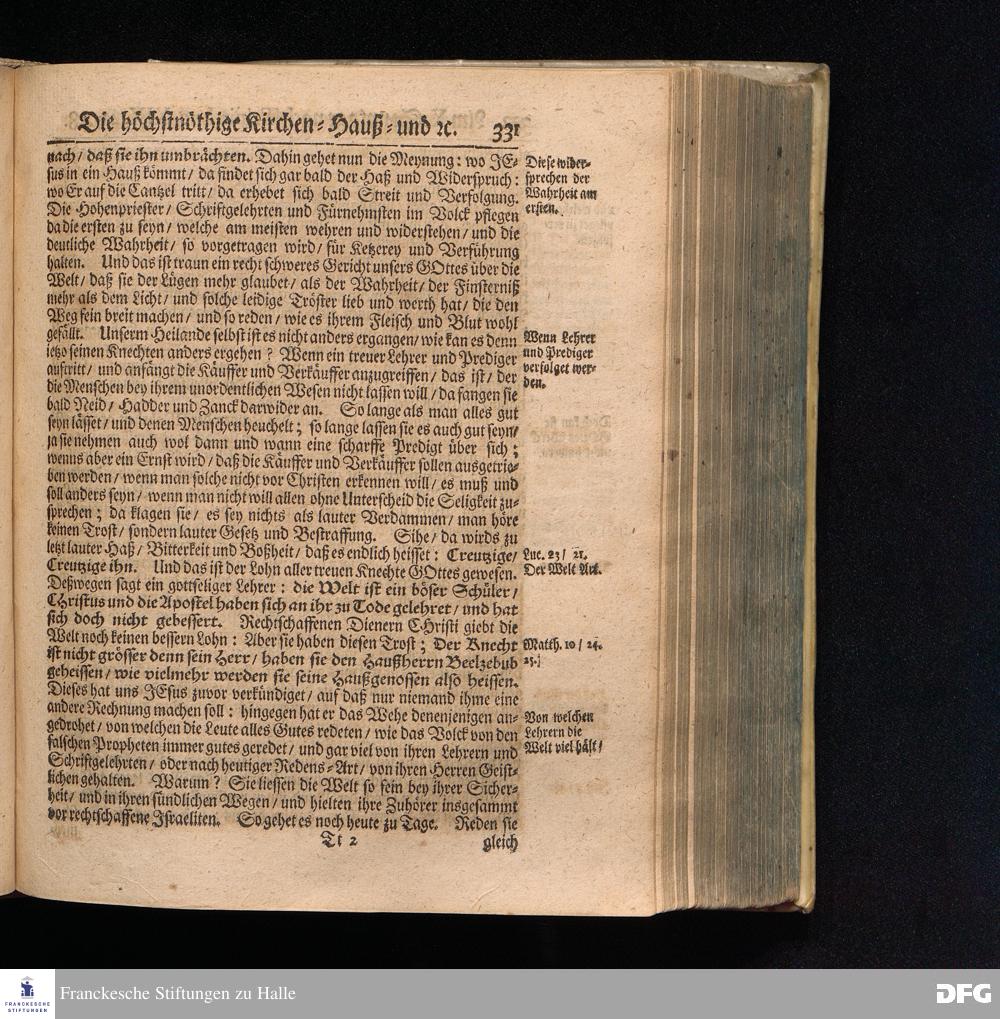 Die höchstnöthige Kirchen-Hauß-und ꝛc. 331
nach/ daß sie ihn umbrächten. Dahin gehet nun die Meynung: wo JE-
sus in ein Hauß kömmt/ da findet sich gar bald der Haß und Widerspruch:
wo Er auf die Cantzel tritt/ da erhebet sich bald Streit und Verfolgung.
Die Hohenpriester/ Schriftgelehrten und Fürnehmsten im Volck pflegen
da die ersten zu seyn/ welche am meisten wehren und widerstehen/ und die
deutliche Wahrheit/ so vorgetragen wird/ für Ketzerey und Verführung
halten. Und das ist traun ein recht schweres Gericht unsers GOttes über die
Welt/ daß sie der Lügen mehr glaubet/ als der Wahrheit/ der Finsterniß
mehr als dem Licht/ und solche leidige Tröster lieb und werth hat/ die den
Weg fein breit machen/ und so reden/ wie es ihrem Fleisch und Blut wohl
gefällt. Unserm Heilande selbst ist es nicht anders ergangen/ wie kan es denn
ietzo seinen Knechten anders ergehen? Wenn ein treuer Lehrer und Prediger
auftritt/ und anfängt die Käuffer und Verkäuffer anzugreiffen/ das ist/ der
die Menschen bey ihrem unordentlichen Wesen nicht lassen will/ da fangen sie
bald Neid/ Hadder und Zanck darwider an. So lange als man alles gut
seyn lässet/ und denen Menschen heuchelt; so lange lassen sie es auch gut seyn/
ja sie nehmen auch wol dann und wann eine scharffe Predigt über sich;
wenns aber ein Ernst wird/ daß die Käuffer und Verkäuffer sollen ausgetrie-
ben werden/ wenn man solche nicht vor Christen erkennen will/ es muß und
soll anders seyn/ wenn man nicht will allen ohne Unterscheid die Seligkeit zu-
sprechen; da klagen sie/ es sey nichts als lauter Verdammen/ man höre
keinen Trost/ sondern lauter Gesetz und Bestraffung. Sihe/ da wirds zu
letzt lauter Haß/ Bitterkeit und Boßheit/ daß es endlich heisset: Creutzige/
Creutzige ihn. Und das ist der Lohn aller treuen Knechte GOttes gewesen.
Deßwegen sagt ein gottseliger Lehrer: die Welt ist ein böser Schüler/
CHristus und die Apostel haben sich an ihr zu Tode gelehret/ und hat
sich doch nicht gebessert. Rechtschaffenen Dienern CHristi giebt die
Welt noch keinen bessern Lohn: Aber sie haben diesen Trost; Der Knecht
ist nicht grösser denn sein Herr/ haben sie den Haußherrn Beelzebub
geheissen/ wie vielmehr werden sie seine Haußgenossen also heissen.
Dieses hat uns JEsus zuvor verkündiget/ auf daß nur niemand ihme eine
andere Rechnung machen soll: hingegen hat er das Wehe denenjenigen an-
gedrohet/ von welchen die Leute alles Gutes redeten/ wie das Volck von den
falschen Propheten immer gutes geredet/ und gar viel von ihren Lehrern und
Schriftgelehrten/ oder nach heutiger Redens-Art/ von ihren Herren Geist-
lichen gehalten. Warum? Sie liessen die Welt so fein bey ihrer Sicher-
heit/ und in ihren sündlichen Wegen/ und hielten ihre Zuhörer insgesammt
vor rechtschaffene Israeliten. So gehet es noch heute zu Tage. Reden sie
Tt 2 gleich
Diese wider-
sprechen der
Wahrheit am
ersten.
Wenn Lehrer
und Prediger
verfolget wer-
den.
Luc. 23/ 21.
Der Welt Art.
Matth. 10/ 24.
25.
Von welchen
Lehrern die
Welt viel hält/
FRANCKESCHE
STIFTUNGEN
Franckesche Stiftungen zu Halle
DFG